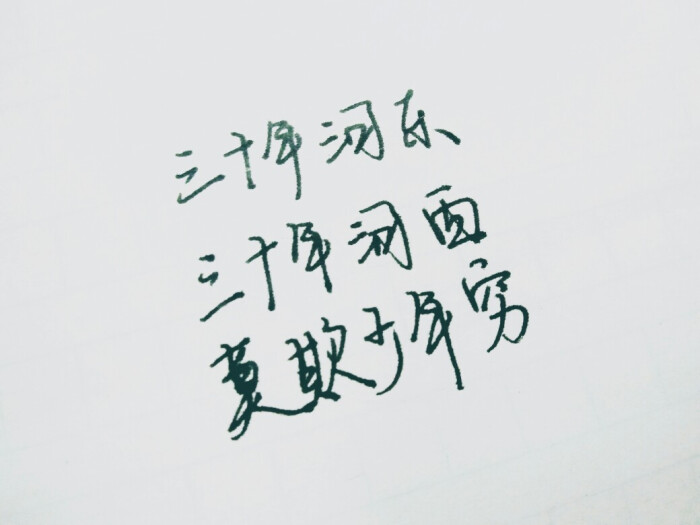 三十年河东
三十年河西
莫欺少年穷